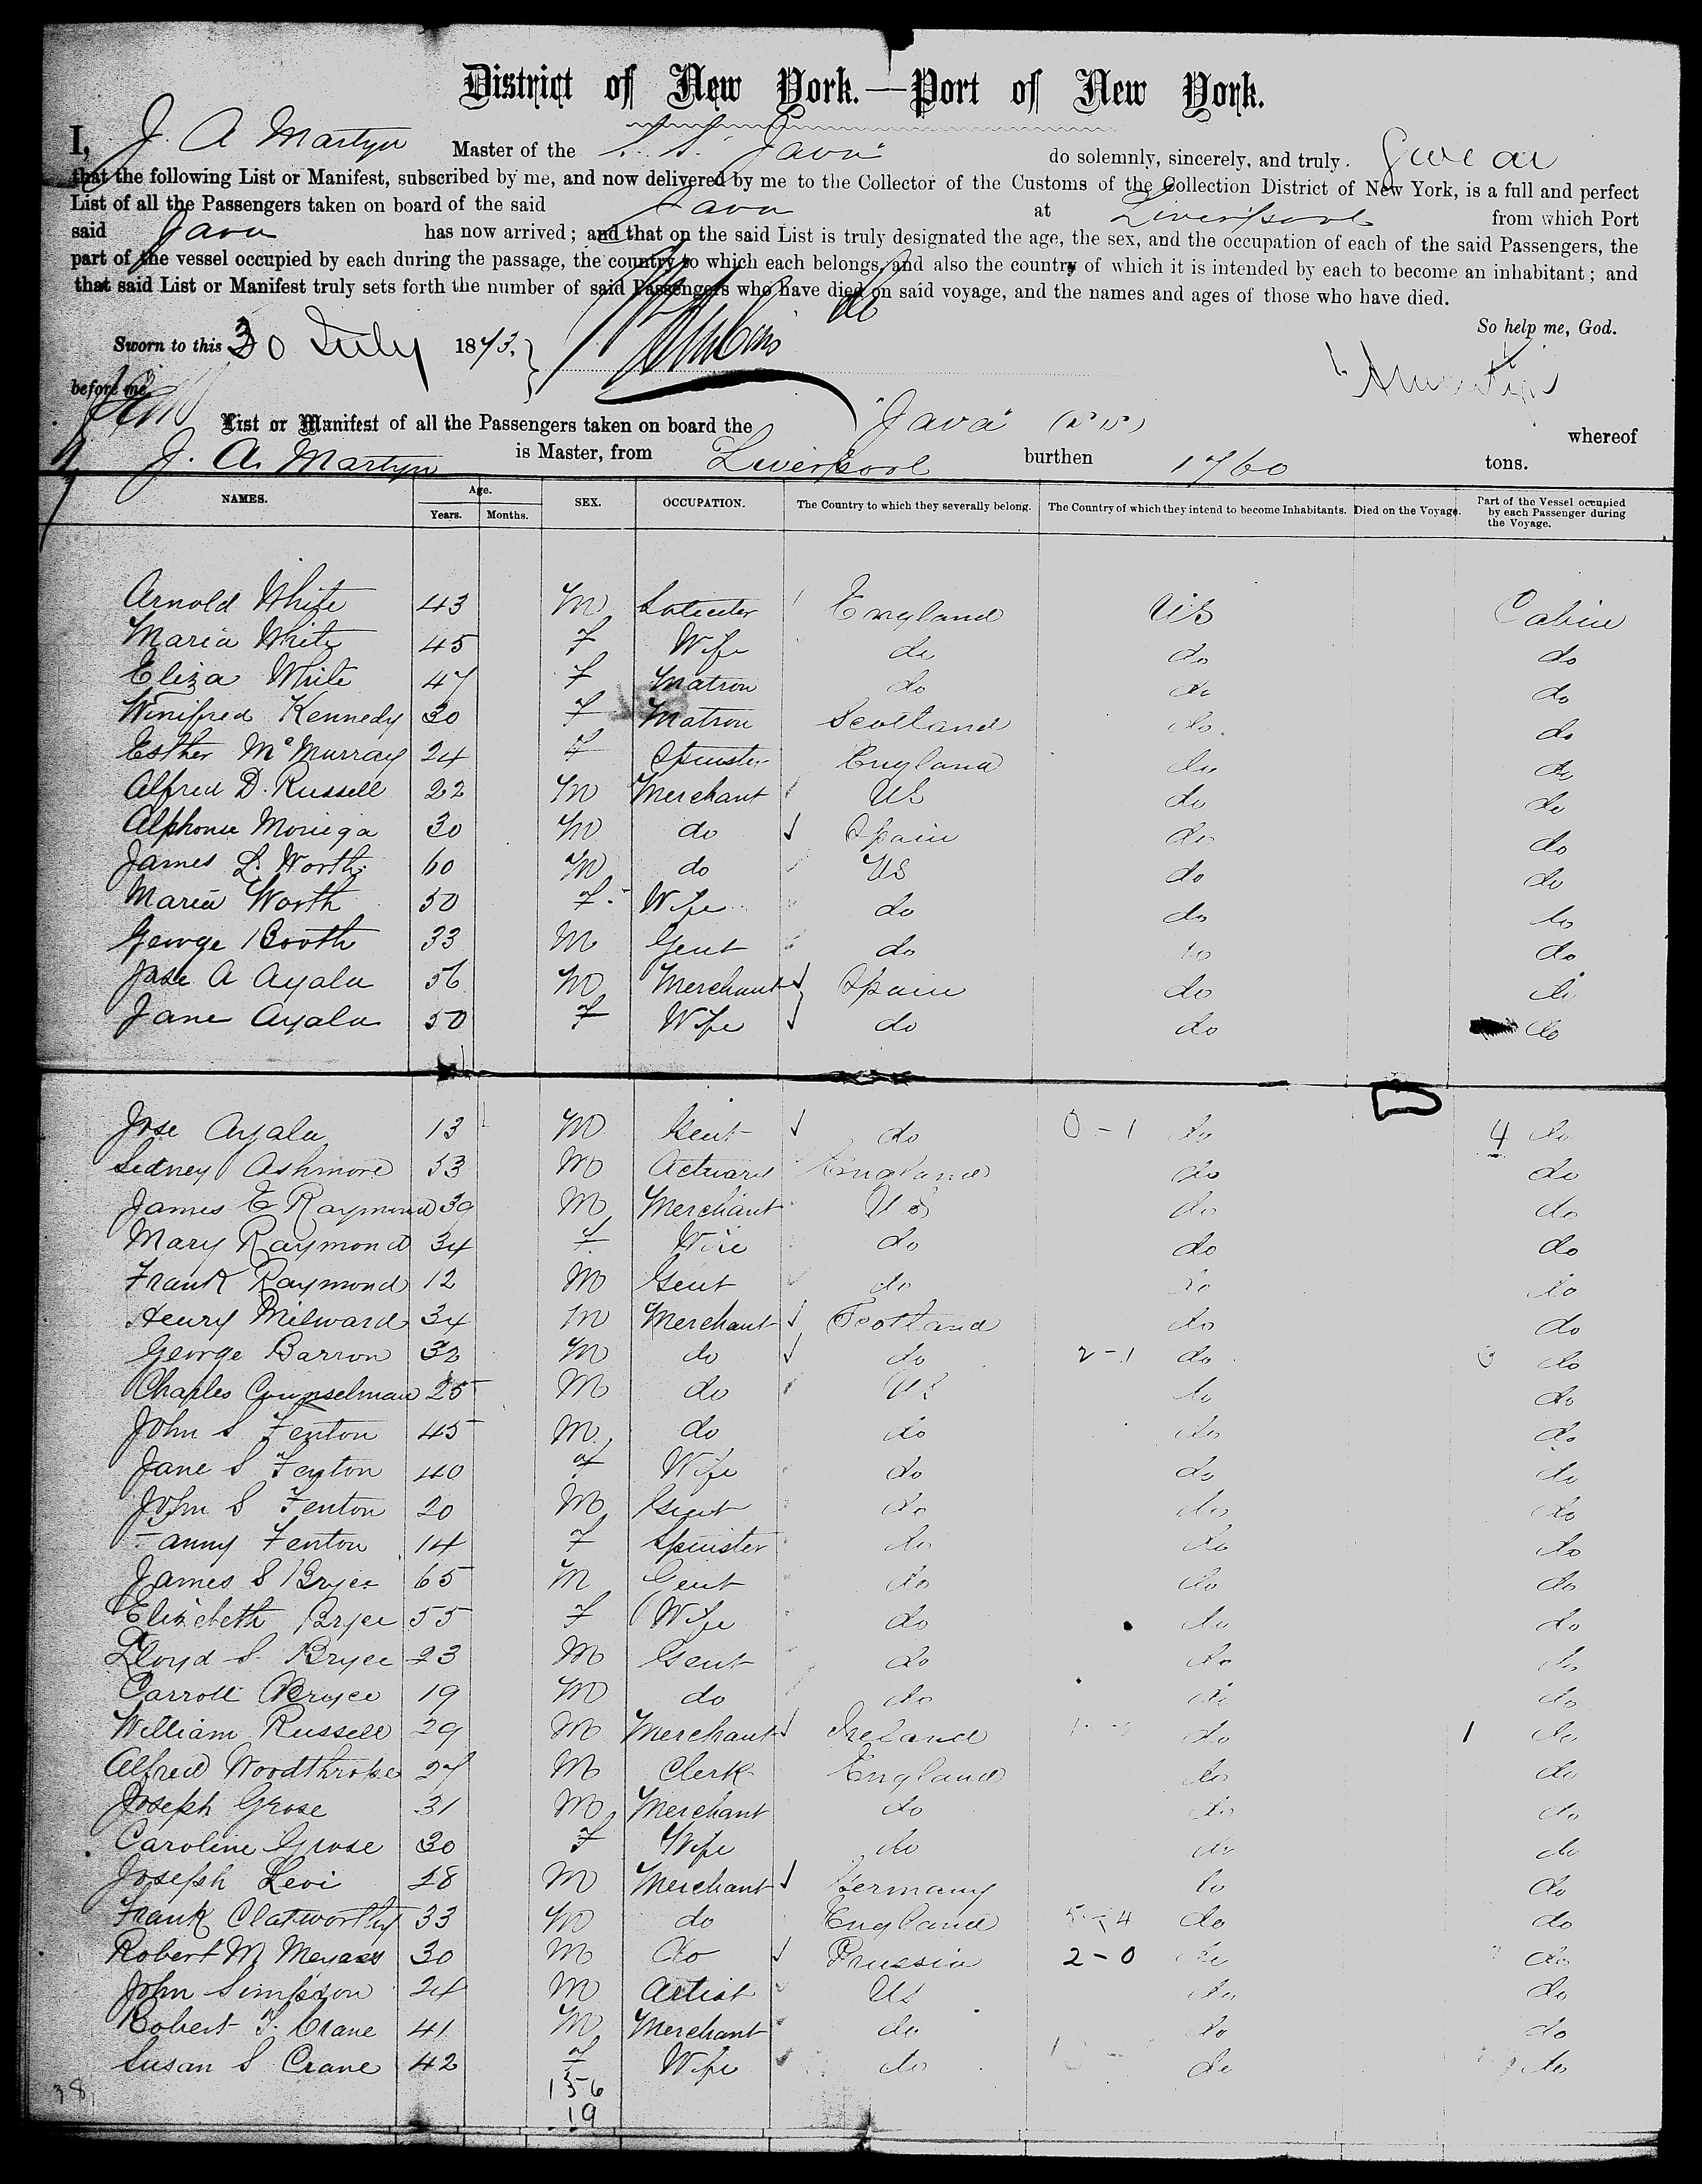 District of New York.—Port of New York.
I, J. A Martyn Master of the S. S. Java do solemnly, sincerely, and truly. Swear
that the following List or Manifest, subscribed by me, and now delivered by me to the Collector of the Customs of the Collection District of New York, is a full and perfect
List of all the Passengers taken on board of the said Java at Liverpool from which Port
said Java has now arrived; and that on the said List is truly designated the age, the sex, and the occupation of each of the said Passengers, the
part of the vessel occupied by each during the passage, the country to which each belongs, and also the country of which it is intended by each to become an inhabitant; and
that said List or Manifest truly sets forth the number of said Passengers who have died on said voyage, and the names and ages of those who have died.
So help me, God.
Sworn to this 30 July 1873.
before me
List or Manifest of all the Passengers taken on board the "Java" whereof
J. A. Martyn is Master, from Liverpool burthen 1760 tons.
NAMES. Age. Years. Months. SEX. OCCUPATION. The Country to which they severally belong. The Country of which they intend to become Inhabitants. Died on the Voyage. Part of the Vessel occupied by each Passenger during the Voyage.
Arnold White 43 M England US Cabin
Maria White 45 F Wife do do do
Eliza White 47 F Matron do do do
Winifred Kennedy 30 F Matron Scotland do do
Esther McMurray 24 F Spinster England do do
Alfred D. Russell 22 M Merchant US do do
Alphonse Moriega 30 M do Spain do do
James L. Worth 60 M do US do do
Maria Worth 50 F. Wife do do do
George Booth 33 M Gent do do do
Jose A Ayala 56 M Merchant Spain do do
Jane Ayala 50 F Wife do do do
Jose Ayala 13 M Gent do 0-1 do 4 do
Sidney Ashmore 53 M Actuary England do do
James E Raymond 39 M Merchant US do do
Mary Raymond 34 F Wife do do do
Frank Raymond 12 M Gent do do do
Henry Milward 34 M Merchant Scotland do do
George Barron 32 M do do 2-1 do do
Charles Counselman 25 M do US do do
John S Fenton 45 M do do do do
Jane S Fenton 40 F Wife do do do
John S Fenton 20 M Gent do do do
Fanny Fenton 14 F Spinster do do do
James S Bryce 65 M Gent do do do
Elizebeth Bryce 55 F Wife do do do
Lloyd S. Bryce 23 M Gent do do do
Carroll Bryce 19 M do do do do
William Russell 29 M Merchant Ireland do 1 do
Alfred Woodthrope 27 M Clerk England do do
Joseph Grose 31 M Merchant do do do
Caroline Grose 30 F Wife do do do
Joseph Levi 28 M Merchant Germany do do
Frank Clatworthy 33 M do England do do
Robert M 30 M do Prussia 2-0 do do
John Simpson 24 M Artist US do do
Robert T. Crane 41 M Merchant do do do
Susan S Crane 42 F Wife do do do
156
38 19